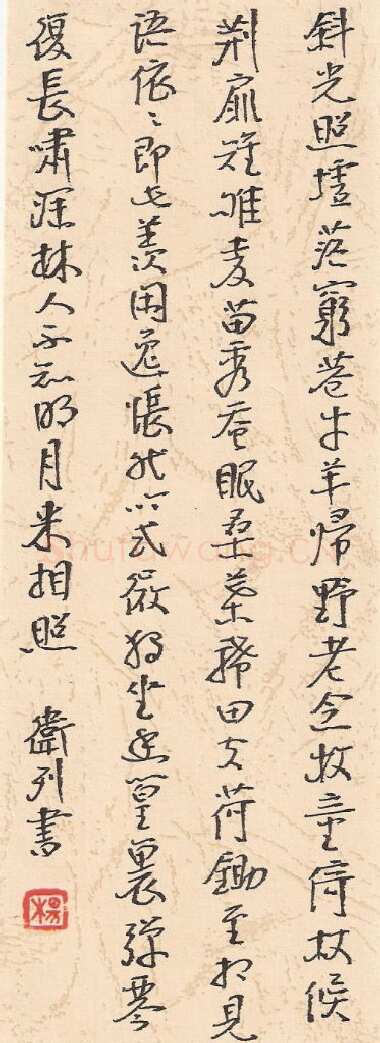 斜光照墟落窮巷牛羊歸野老念牧童倚杖候
荆扉雉雊麦苗秀蚕眠桑葉稀田夫荷鋤至相見
語依〻即此羨閑逸悵然吟式微独坐幽篁裏弹琴
復長嘯深林人不知明月来相照 衛列書
楊